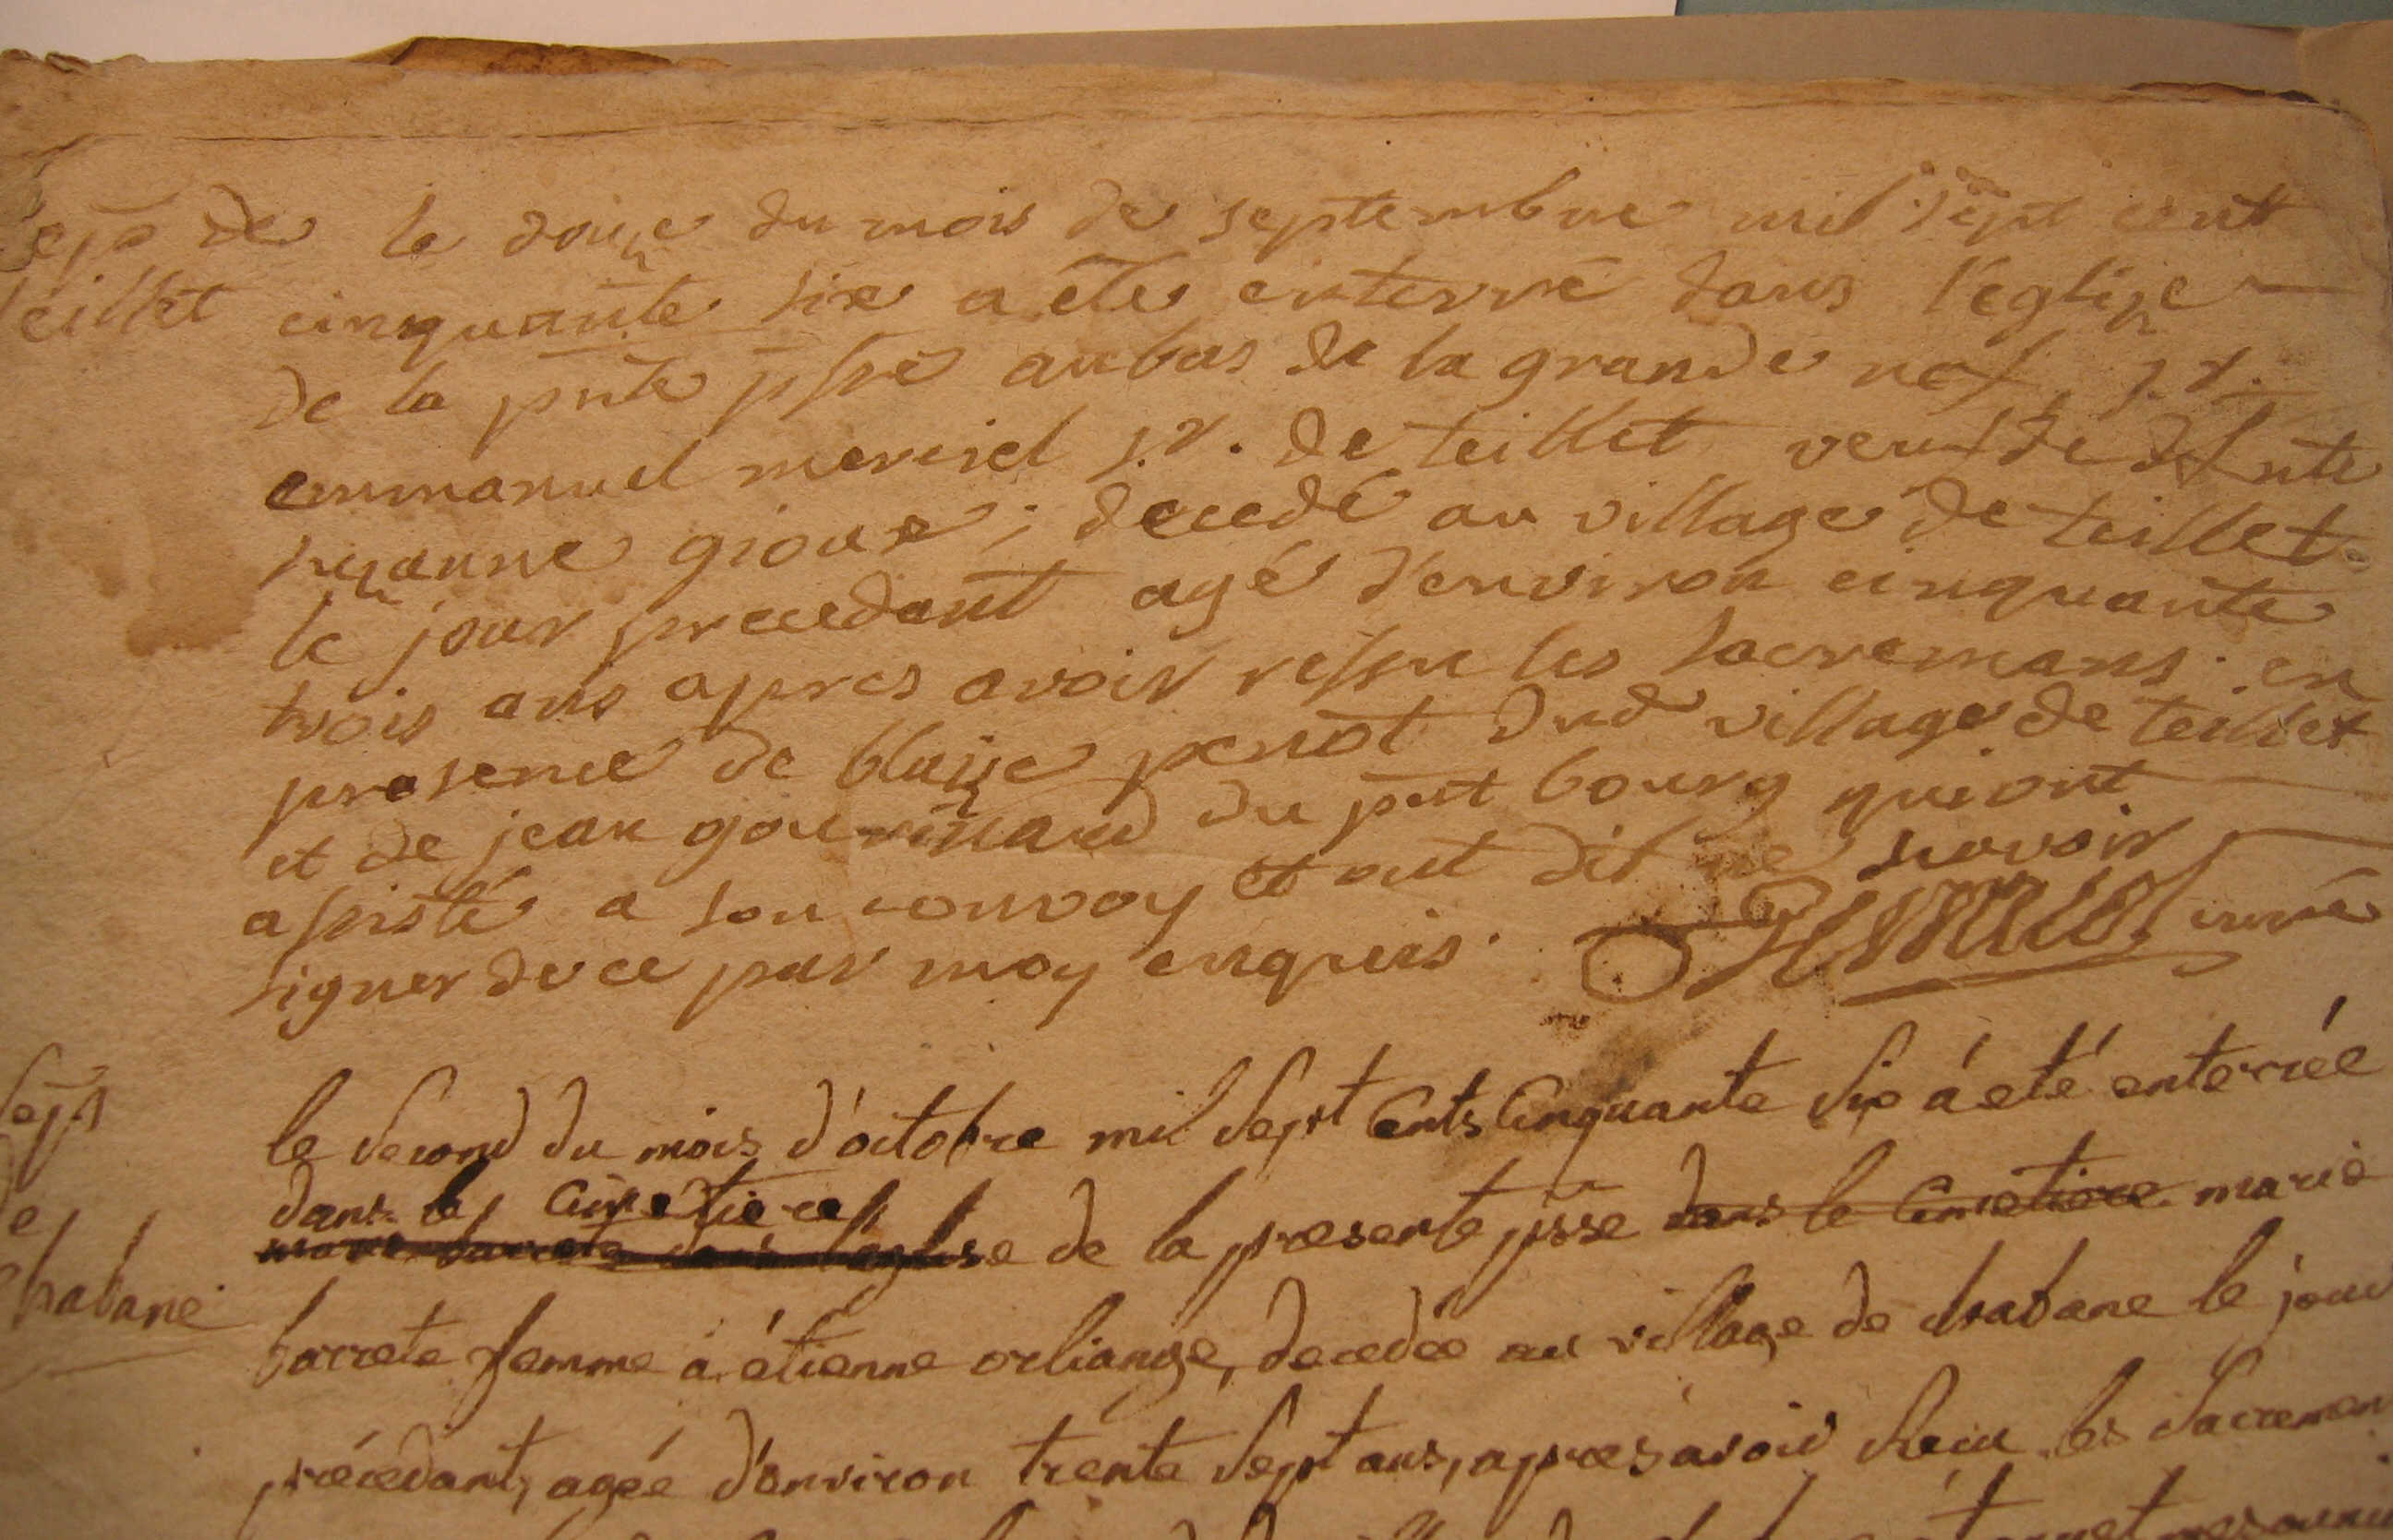 sepr de
teillet
le douze du mois de septembre mil sept cent
cinquante six a éte enterré dans l'eglize
de la pnte psse au bas de la grande nef, s.r.
emmanuel merciel s.r. de teillet veuf de dfnte
suzanne gioux; decedé au village de teillet
le jour precedant agé d'environ cinquante
trois ans apres avoir ressu les sacremans. en
prasence de blaize penot dud village de teillet
et de jean du pnt bourg qui ont
assisté a son convoy et ont dit ne scavoir
signer de ce par moy enquis. curé
sept
de
chabane
le second du mois d'octobre mil sept cents cinquante six á eté enterrée
dans le cimetiere
de la presente psse dans le cimetiere marie
barrete femme á étienne orliange, decedée au village de chabane le jour
précédant, agée d'environ trente sept ans, apres avoir recu les sacremen